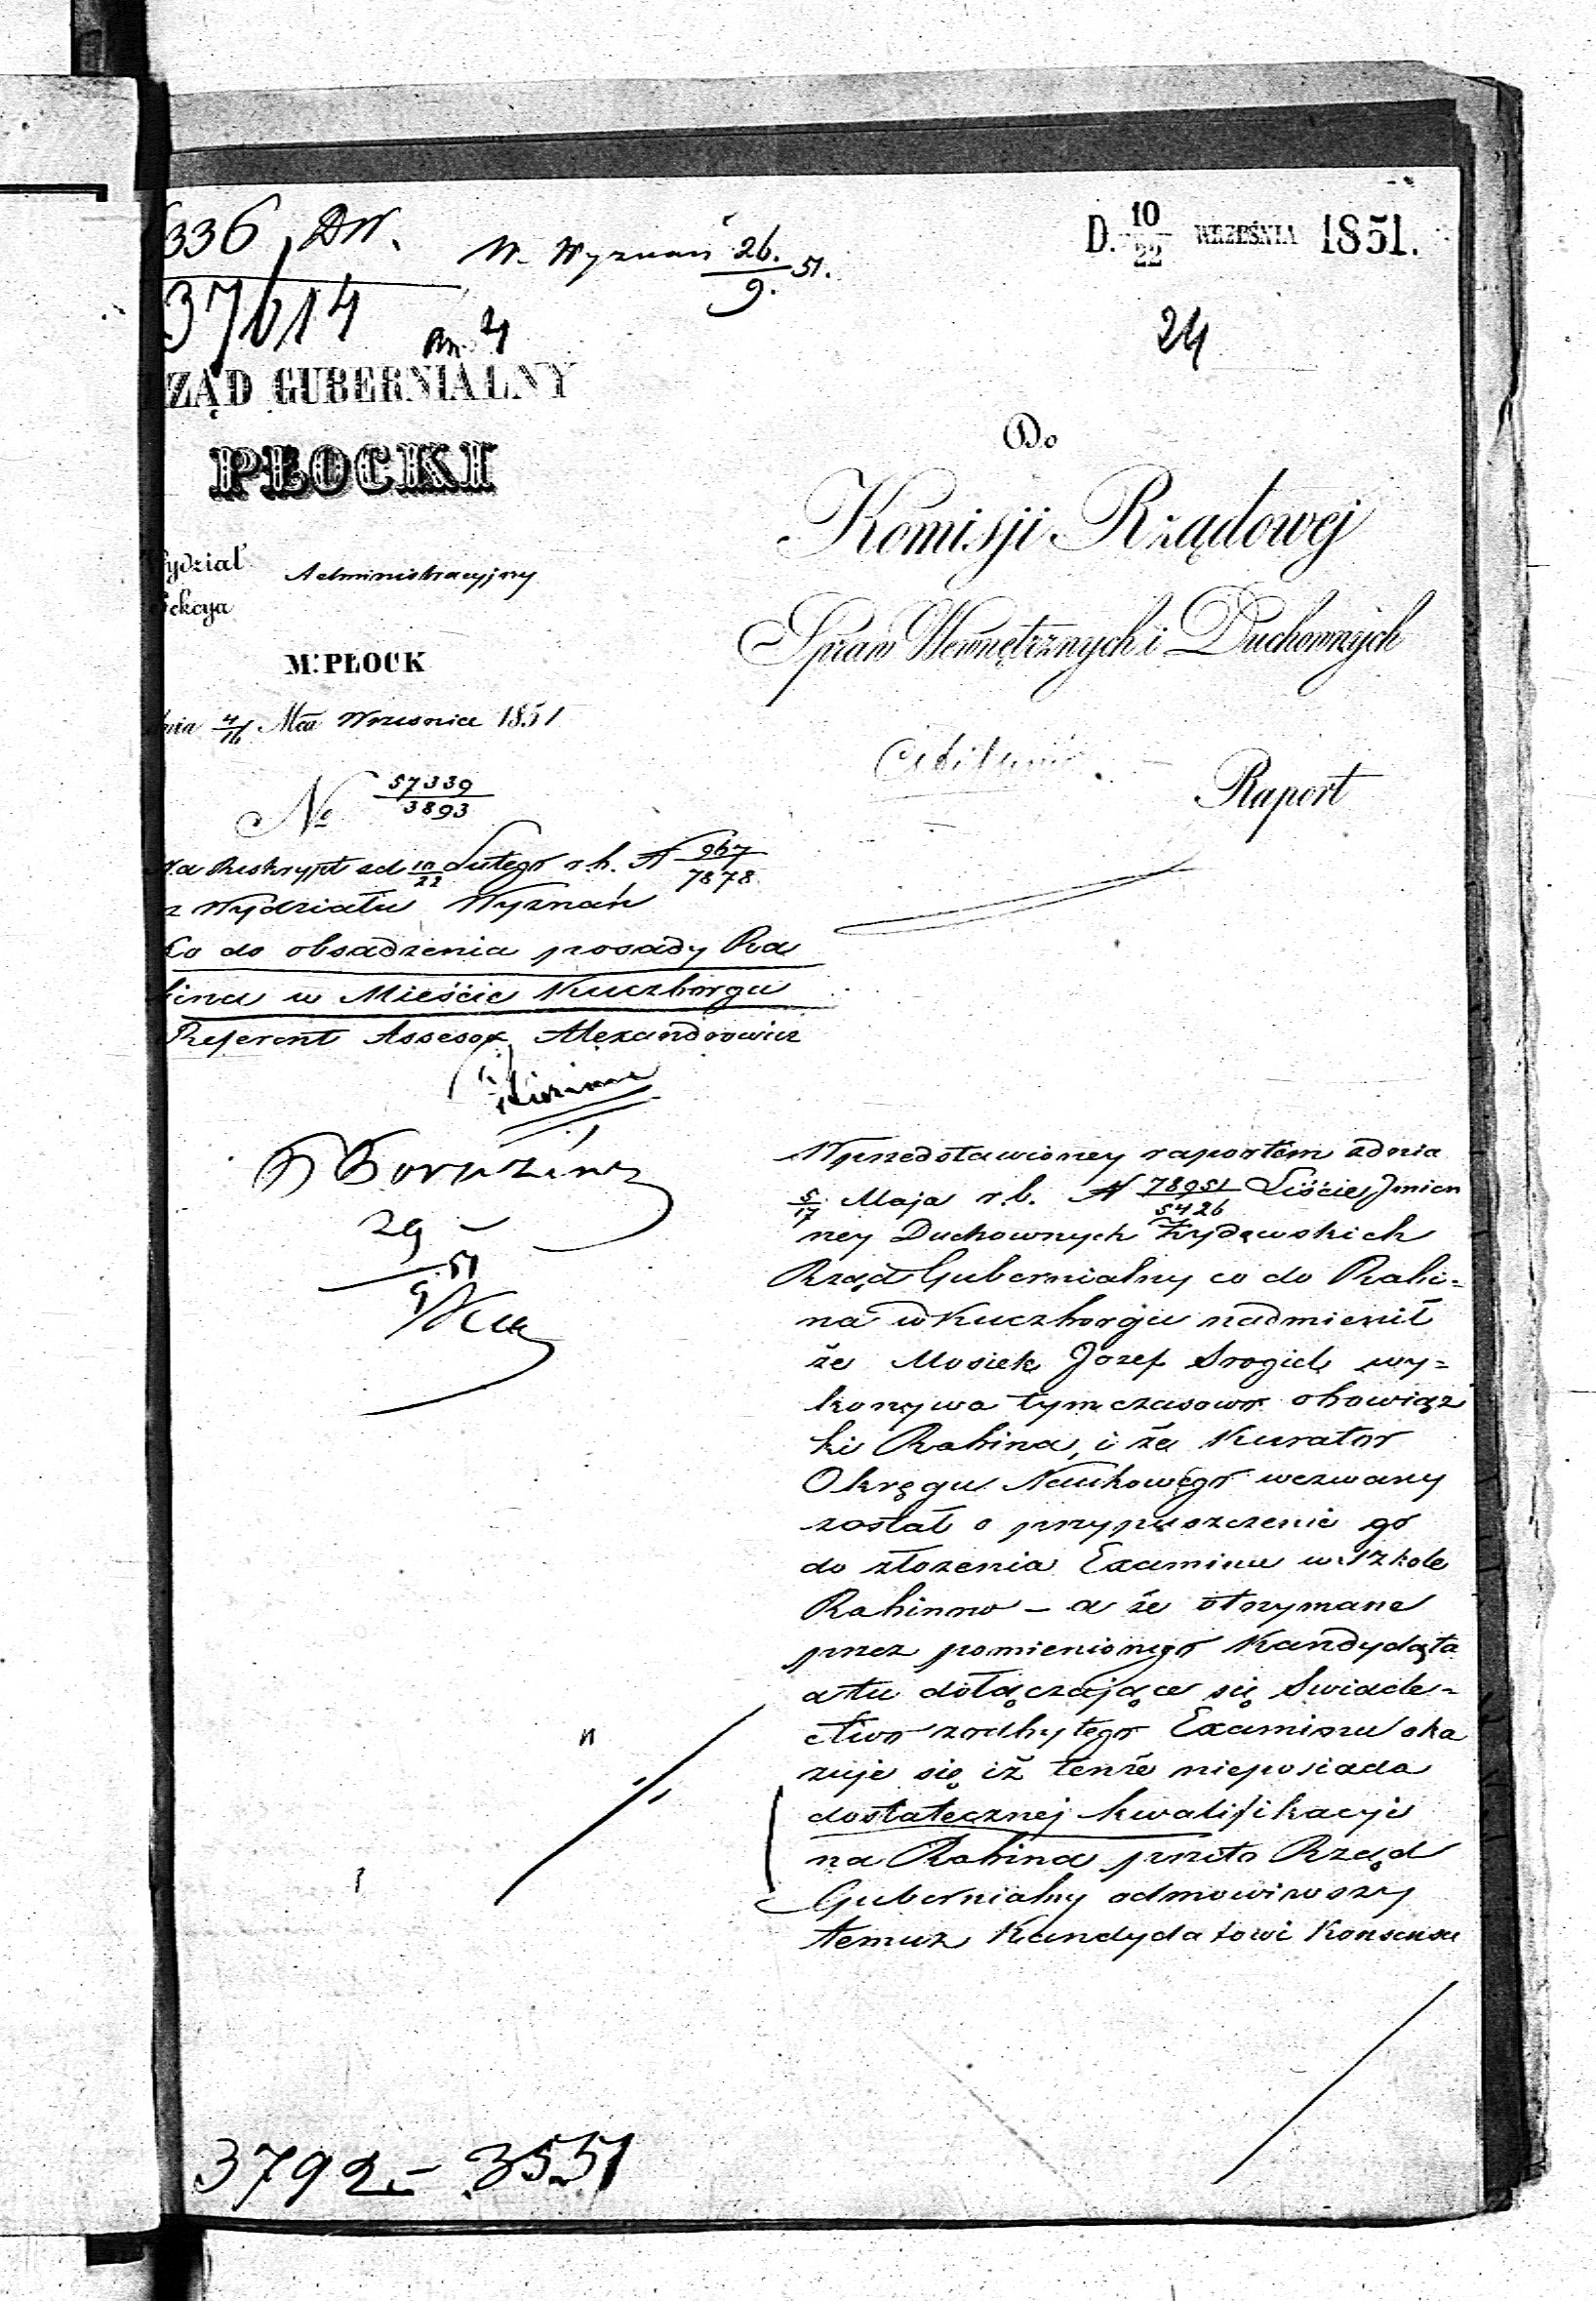 336 DW.
37614
W. Wyznań 26./9. 51.
D. 10/22 WRZEŚNIA 1851.
24
ZĄD GUBERNIALNY
PŁOCKI
ydział Administracyjny
ekcya
M. PŁOCK
nia 4/16 Mca Wrzesnia 1851
No 57339/3893
Na Reskrypt od 10/22 Lutego r. b. N 967/7878
z Wydziału Wyznań
Co do obsadzenia posady Ra
bina w Mieście Kuczborgu
Referent Assesor Alexandrowicz
29
9 51
Do
Komisji Rządowej
Spraw Wewnętrznych i Duchownych
Raport
W przedstawioney raportem z dnia
5/17 Maja r. b. N 78951/5426 Liście Jmien
ney Duchownych Żydowskich
Rząd Gubernialny co do Rabi=
na w Kuczborgu nadmienił
że Mosiek Jozef Srogid wy=
konywa tymczasowo obowiąz
ki Rabina, i że Kurator
Okręgu Naukowego wezwany
został o przypuszczenie go
do złozenia Examinu w Szkole
Rabinow - a że otrzymane
przez pomienionego Kandydata
a tu dołączające się Swiade=
ctwo z odbytego Examinu oka
zuje się iż tenże nieposiada
dostatecznej kwalifikacyi
na Rabina przeto Rząd
Gubernialny odmowiwszy
temuz Kandydatowi Konsensu
3792 - 3551